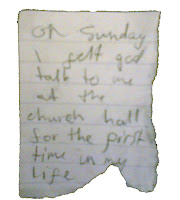 on Sunday
I felt god
talk to me
at the
church hall
for the first
time in my
life